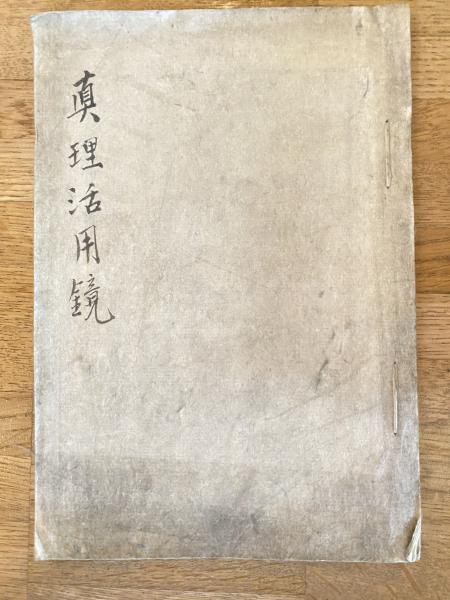 真理活用鏡